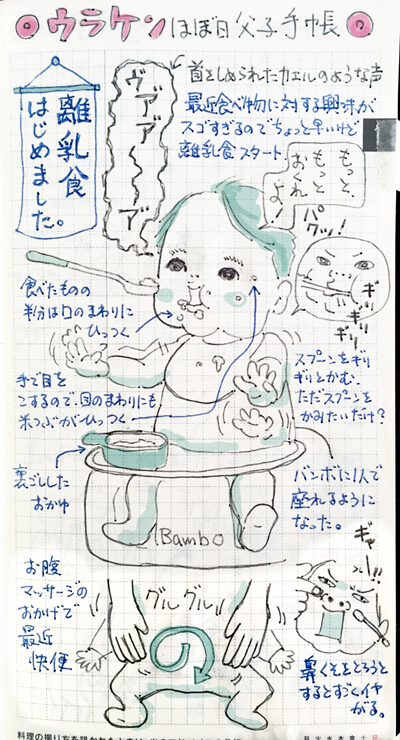 ウラケン ほぼ日 父子手帳
離乳食
はじめました。
ヴアアア〜〜ア"
首をしめられたカエルのような声
最近食べ物に対する興味が
スゴすぎるのでちょっと早いけど
離乳食スタート
もっと、
もっと
おくれ
よ!
パクッ!
ギリ
ギリ
ギリ
食べたものの
半分は口のまわりに
ひっつく
手で目を
こするので、目のまわりにも
米つぶがひっつく
スプーンをギリ
ギリとかむ。
ただスプーンを
かみたいだけ?
裏ごしした
おかゆ
バンボに1人で
座れるように
なった。
Bambo
お腹
マッサージの
おかげで
最近
快便
グルグル
ギャー!!
鼻くそをとろうと
するとすごくイヤ
がる。